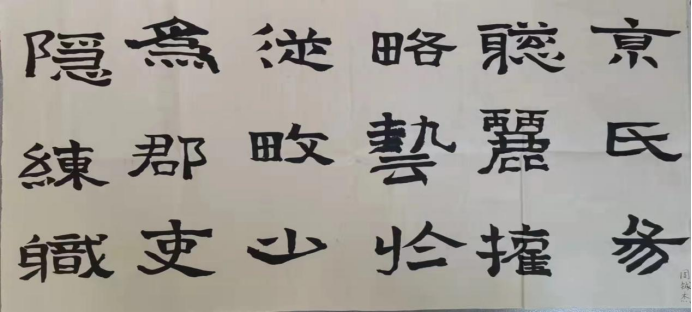 京氏易
聰麗權
略藝於
從畋少
爲郡吏
隱練職